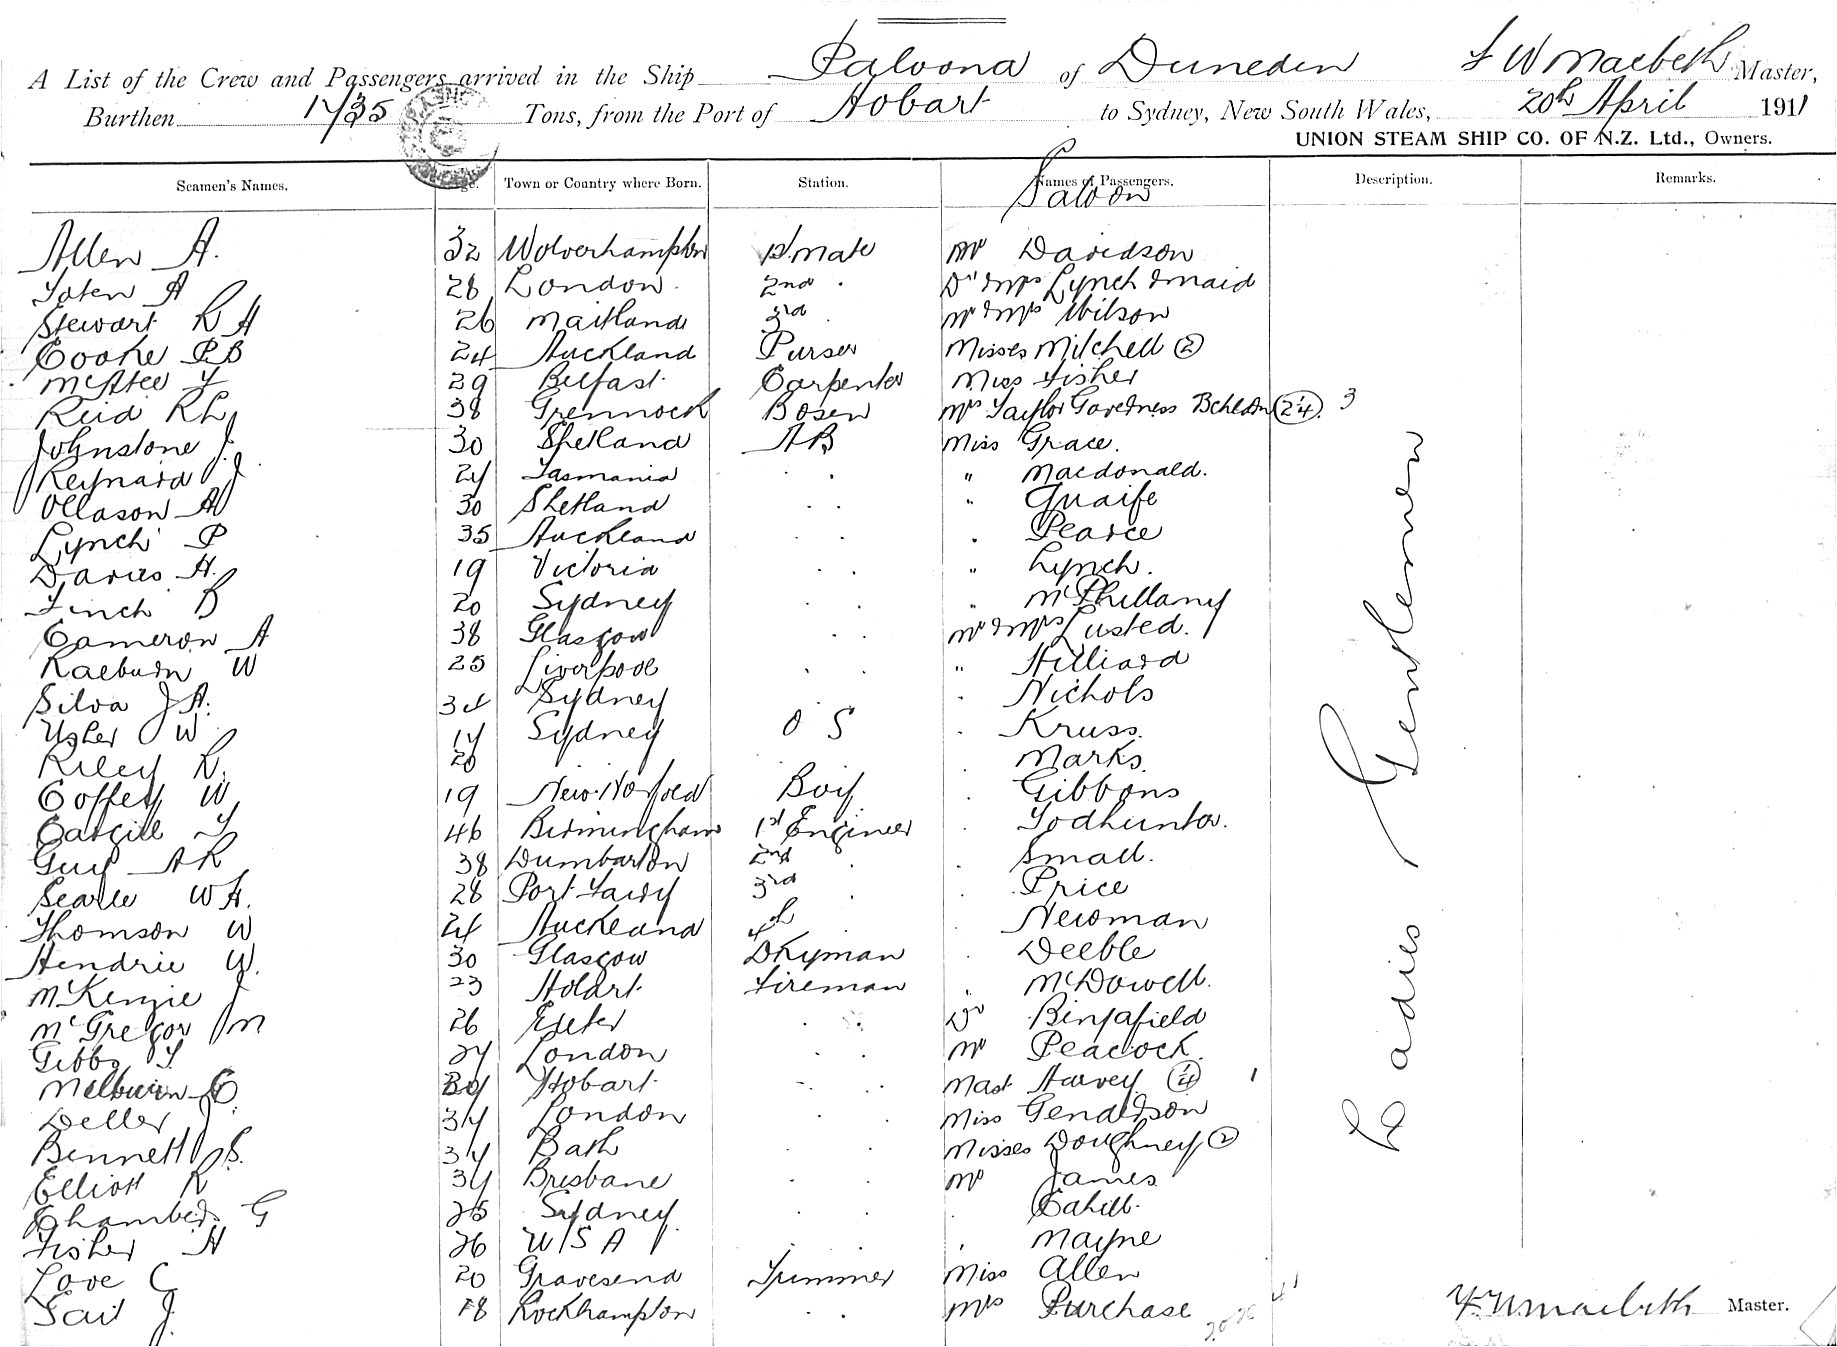 A List of the Crew and Passengers arrived in the Ship Paloona of Dunedin F W Macbeth Master,
Burthen 1735 Tons, from the Port of Hobart to Sydney, New South Wales, 20th April 1911
UNION STEAM SHIP CO. OF N.Z. Ltd., Owners.
Seamen's Names. Age. Town or Country where Born. Station. Names of Passengers. Description. Remarks.
Saloon
Allen A. 32 Wolverhampton 1st Mate Mr Davidson
A 28 London 2nd Dr & Mrs Lynch & maid
Stewart R H 26 Maitland 3rd Mr & Mrs Wilson
Cooke P B 24 Auckland Purser Misses Mitchell (2)
McAtee 29 Belfast Carpenter Miss Fisher
Reid R L 38 Grennock Bosen Mrs Taylor 3
Johnstone J. 30 Shetland AB Miss Grace.
Reynard J 24 Tasmania . " Macdonald.
Ollason A 30 Shetland . . " Quaife
Lynch P 35 Auckland . . . Pearce
Davies H. 19 Victoria . . " Lynch.
Finch B 20 Sydney . . " McPhillamy
Cameron A 38 Glasgow . . Mr & Mrs Lusted.
Raeburn W 25 Liverpool . . " Hilliard
Silva J A. 34 Sydney . Nichols
Usher W 17 Sydney O S . Kruss.
Riley R. 20 . Marks.
Coffey W 19 New Norfolk Boy . Gibbons
Cargill 46 Birmingham 1st Engineer . Todhunter.
Guy A R 38 Dumbarton 2nd . . Small.
Searle W H. 28 Port Fairy 3rd . . Price
Thomson W 24 Auckland 4th Newman
Hendrie W. 30 Glasgow Dkyman . Deeble
McKenzie J 23 Hobart Fireman " McDowell.
McGregor M 26 Exeter . . Dr Bingafield
Gibbs 27 London . . Mr Peacock.
Melburn Hobart . . Mast Harvey 1
Deller J 34 London . . Miss
Bennett S. 34 Bath . . Misses Doughney (2)
Elliott R 34 Brisbane . . Mr James
Chambers G 25 Sydney . . . Cahill.
Fisher H 26 U S A . . , Mayne
Love C 20 Gravesend Trimmer Miss Allen
Tait J. 18 Rockhampton . . Mrs Purchase
Ladies / Gentlemen
F W Macbeth Master.